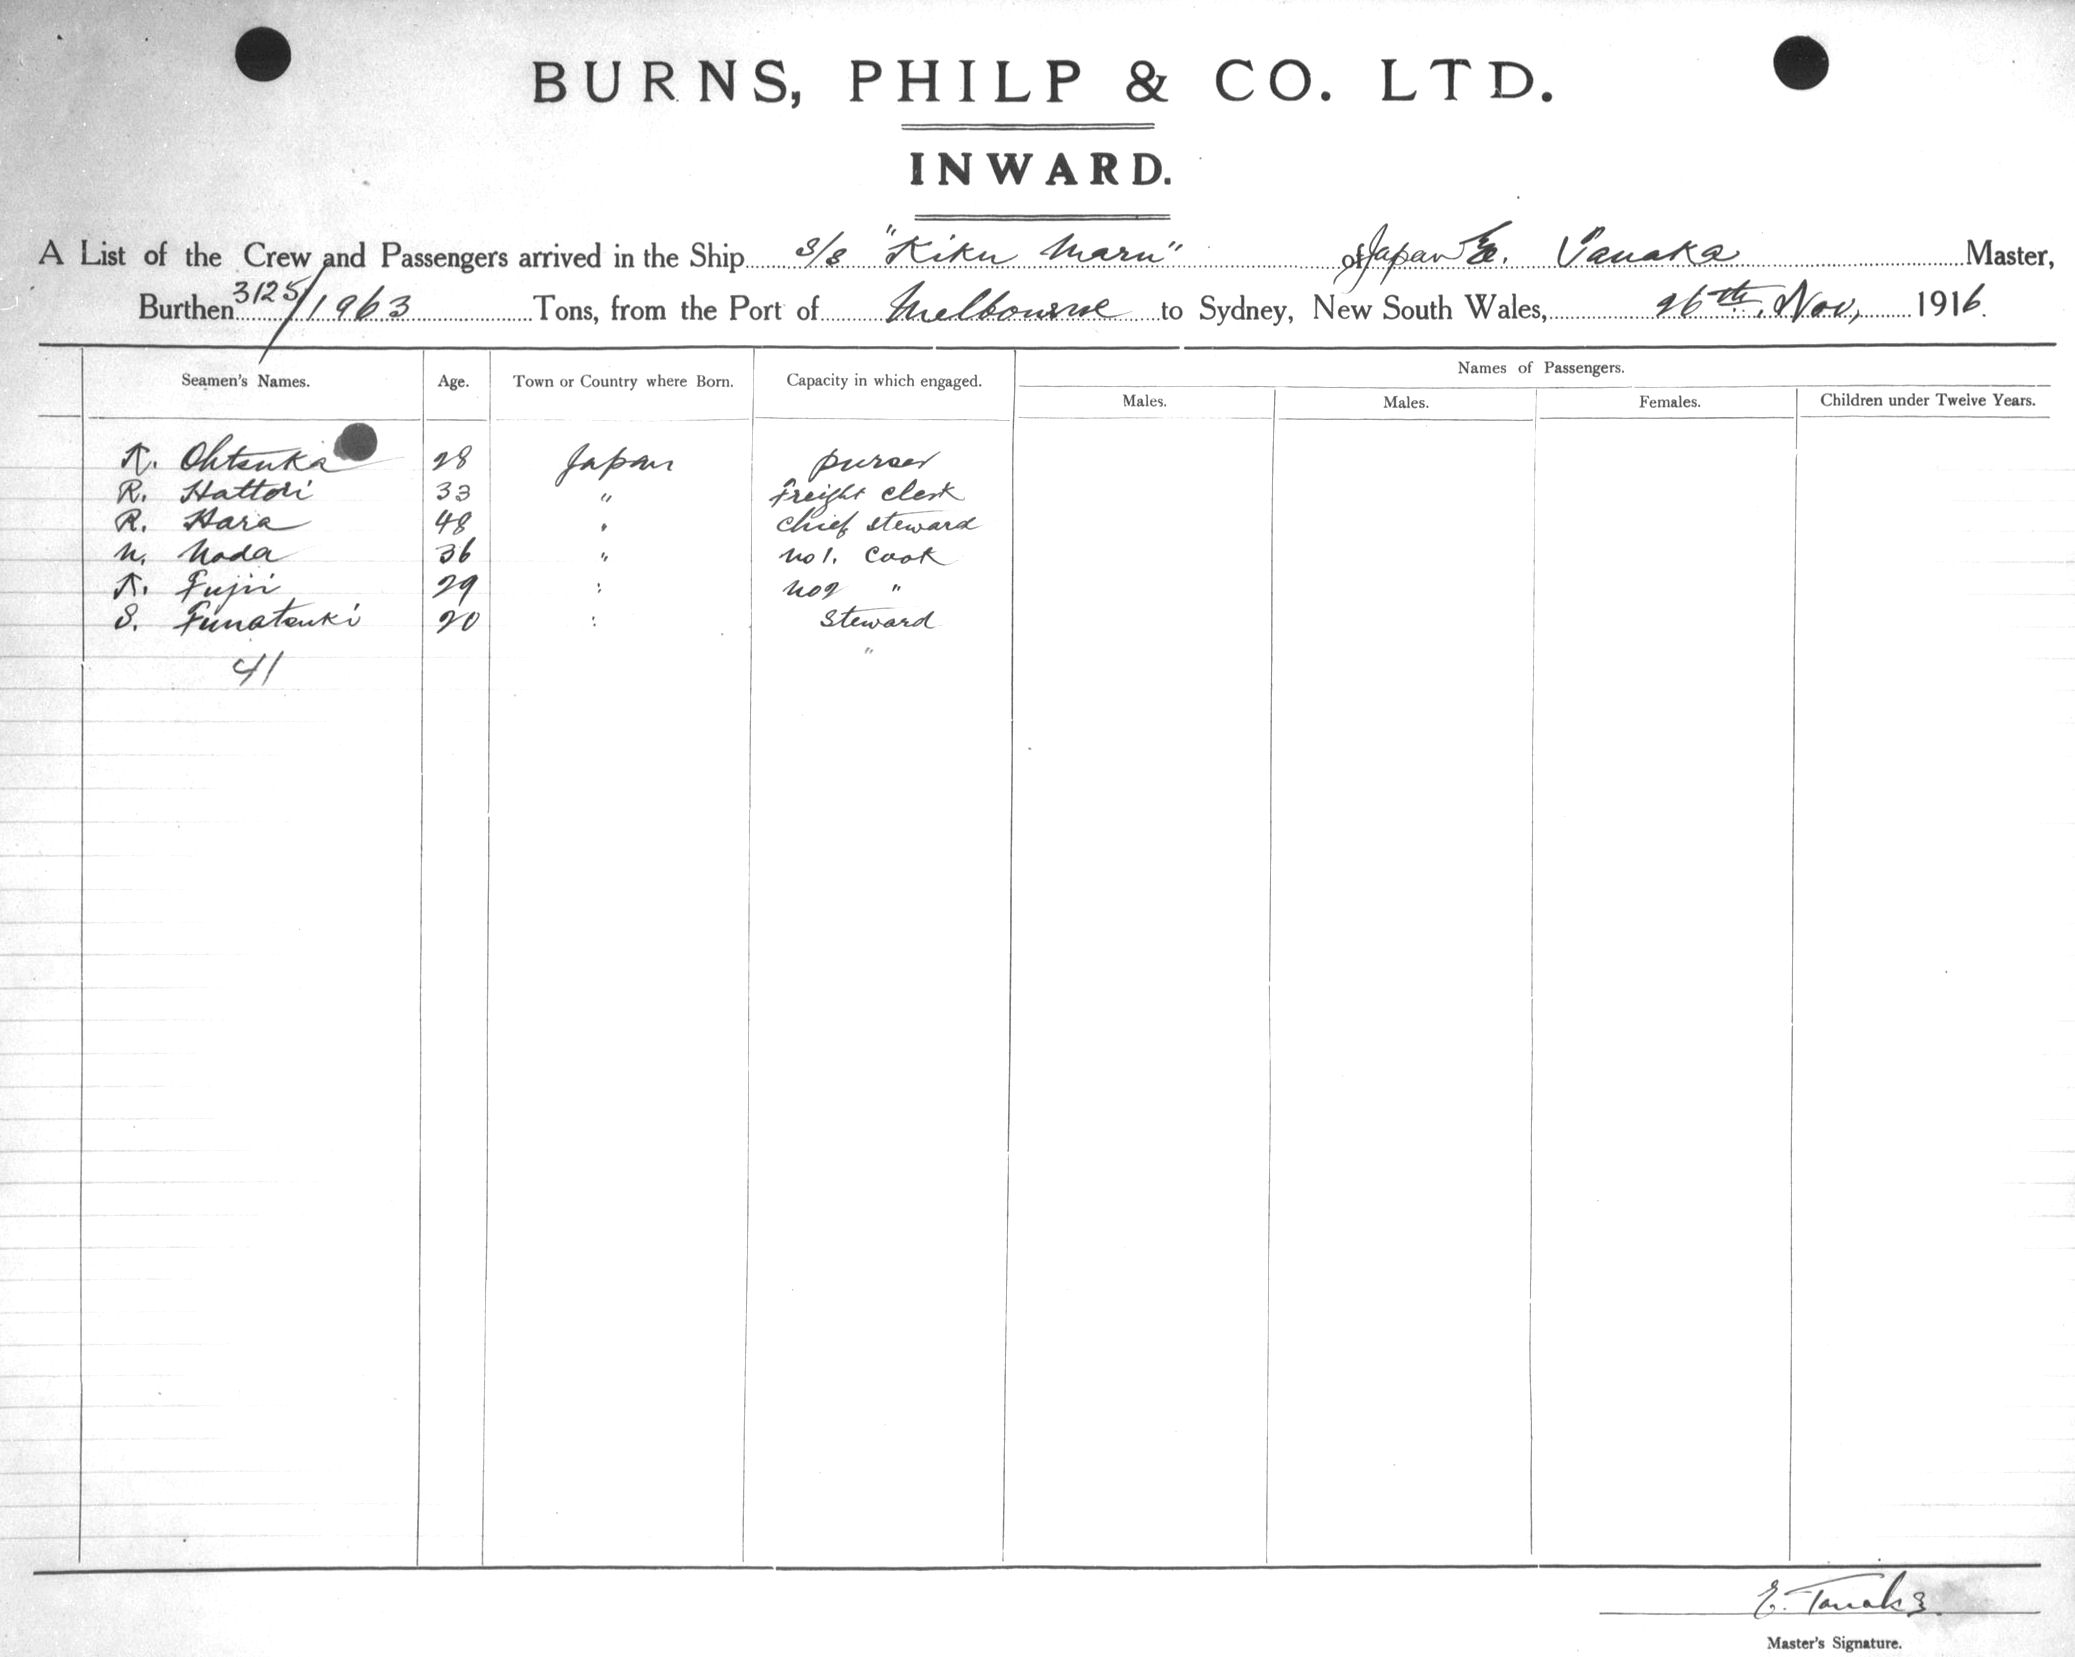 BURNS, PHILP & CO. LTD.
INWARD.
A List of the Crew and Passengers arrived in the Ship S/S "Kiku Maru" of Japan E. Tanaka Master,
Burthen 3125/1963 Tons, from the Port of Melbourne to Sydney, New South Wales, 26th. Nov, 1916.
Names of Passengers.
Seamen's Names. Age. Town or Country where Born. Capacity in which engaged. Males. Males. Females. Children under Twelve Years.
K. Ohtsuka 28 Japan purser
R. Hattori 33 " Freight clerk
R. Hara 48 " chief steward
N. Noda 36 " No 1. Cook
K. Fujii 29 " No 2 "
S. Funatsuki 20 " Steward
"
41
E. Tanaka
Master's Signature.